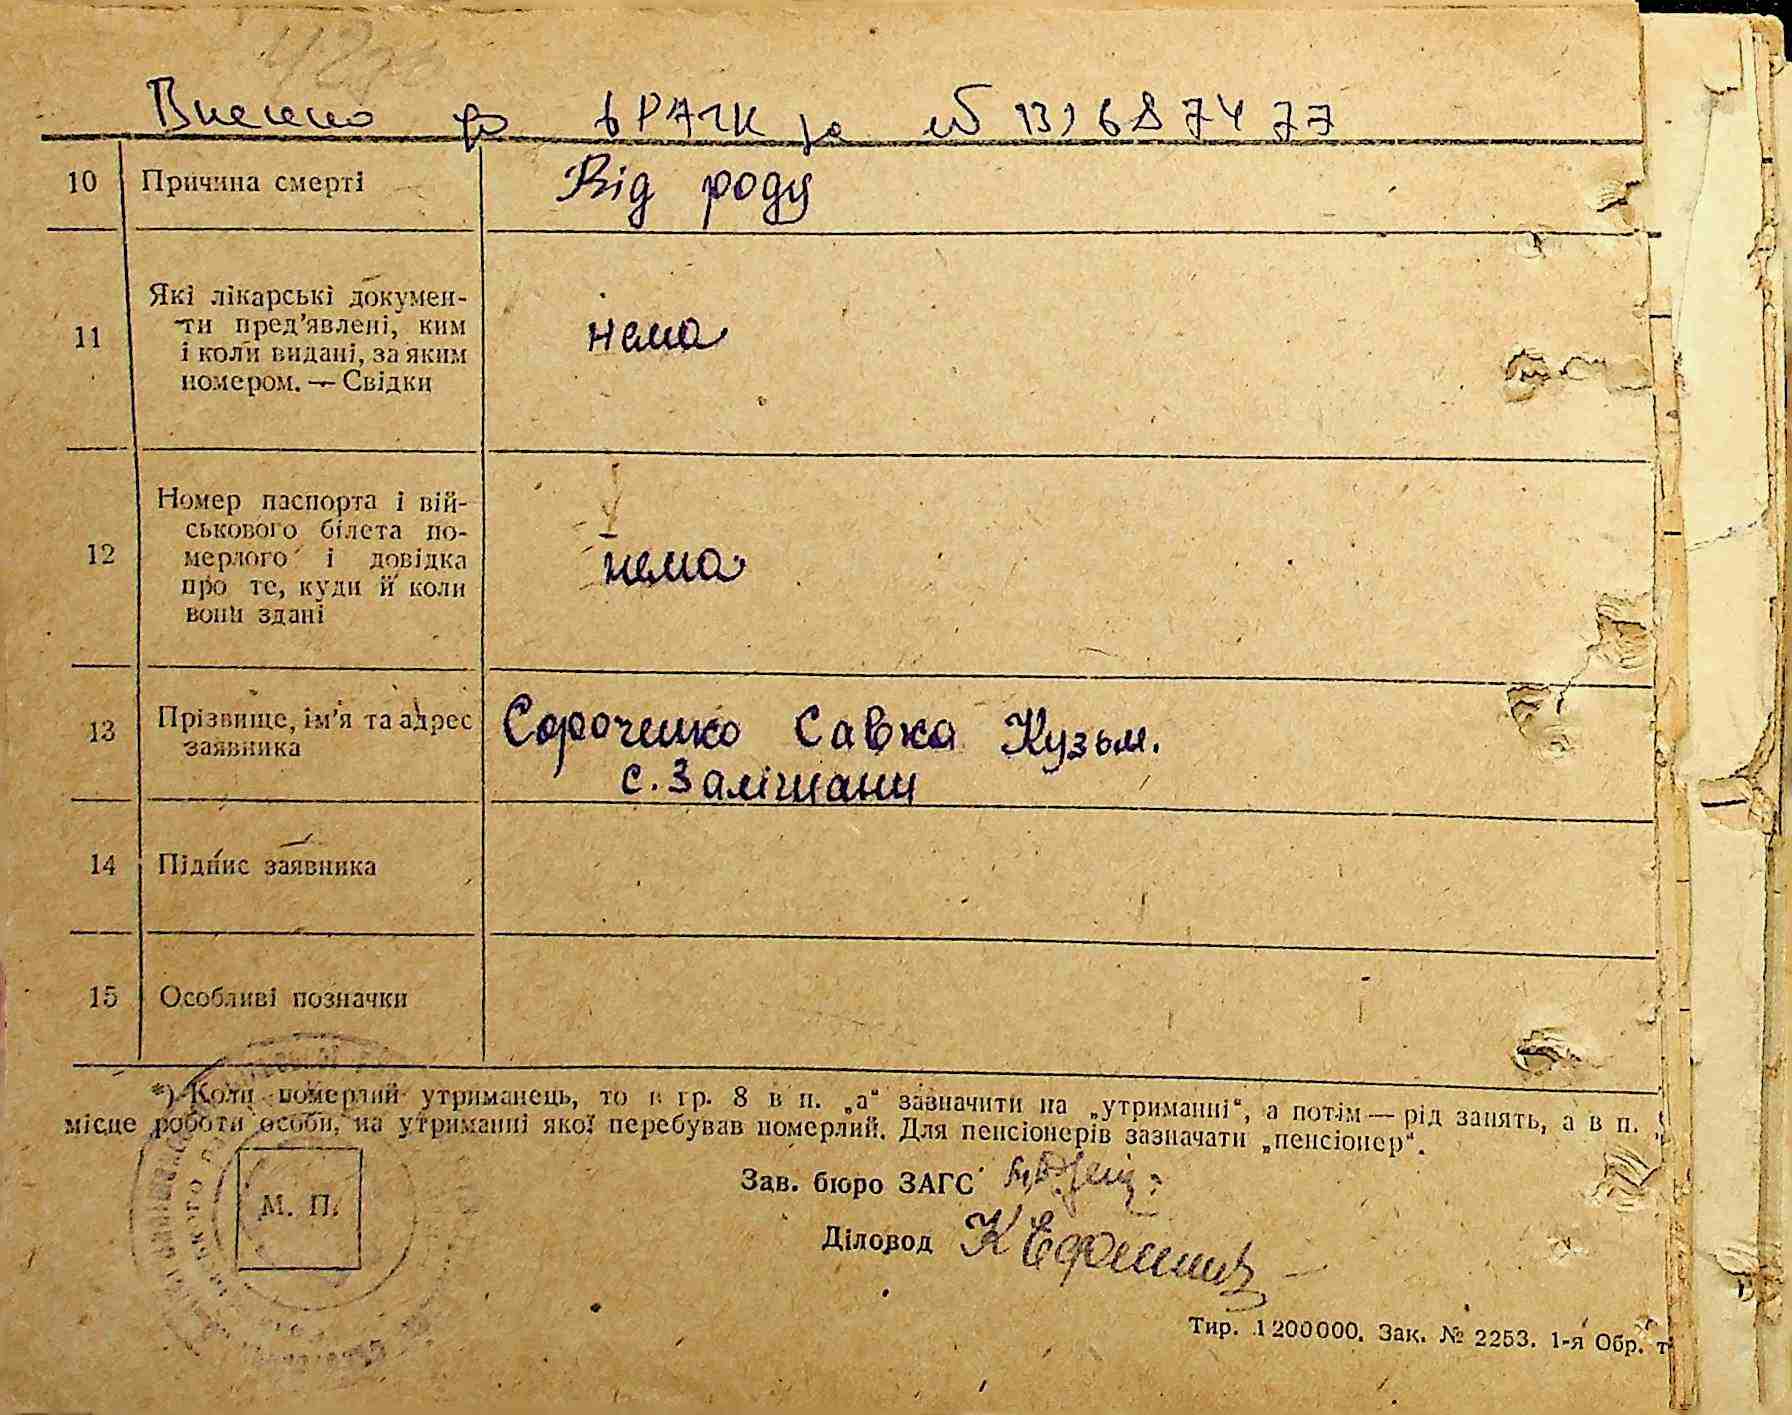 Внесено до ДРАЦС за № 131687477
10 Причина смерті Від роду
11 Які лікарські докумен-
ти пред'явлені, ким
і коли видані, за яким
номером. — Свідки
нема
12 Номер паспорта і вій-
ськового білета по-
мерлого і довідка
про те, куди й коли
вони здані
нема
13 Прізвище, ім'я та адрес
заявника
Сороченко Савка Кузьм.
с. Заліщани
14 Підпис заявника
15 Особливі позначки
*) Коли померлий утриманець, то в гр. 8 в п. „а“ зазначити на „утриманні“, а потім — рід занять, а в п.
місце роботи особи, на утриманні якої перебував померлий. Для пенсіонерів зазначати „пенсіонер“.
Зав. бюро ЗАГС
М. П.
Діловод
Тир. 1200000. Зак. № 2253. 1-я Обр. т